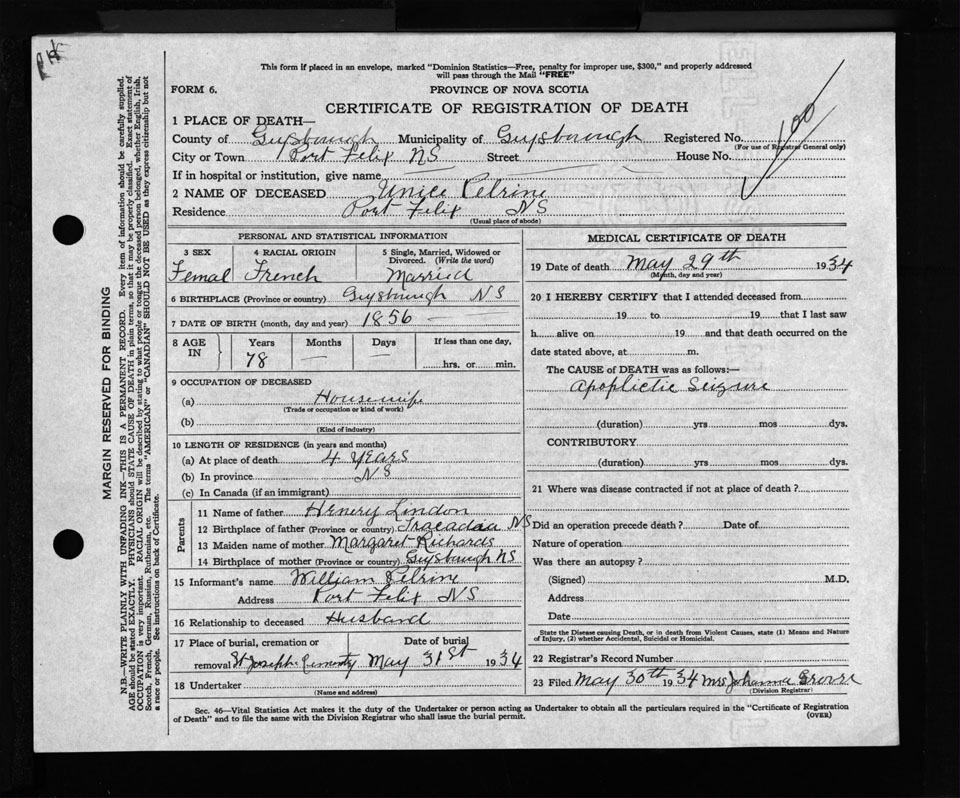 PH
This form if placed in an envelope, marked "Dominion Statistics—Free, penalty for improper use, $300," and properly addressed
will pass through the Mail "FREE"
FORM 6.
PROVINCE OF NOVA SCOTIA
CERTIFICATE OF REGISTRATION OF DEATH
1 PLACE OF DEATH—
County of Guysbourugh Municipality of Guysbourough Registered No. 100
(For use of Registrar General only)
City or Town Port Felix NS Street House No.
If in hospital or institution, give name
2 NAME OF DECEASED Unice Pelrine
Residence Port Felix NS
(Usual place of abode)
PERSONAL AND STATISTICAL INFORMATION
3 SEX 4 RACIAL ORIGIN 5 Single, Married, Widowed or Divorced. (Write the word)
Femal French Married
6 BIRTHPLACE (Province or country) Guysbourgh NS
7 DATE OF BIRTH (month, day and year) 1856
8 AGE IN Years Months Days If less than one day,
78 hrs. or min.
9 OCCUPATION OF DECEASED
(a) Housewife
(Trade or occupation or kind of work)
(b)
(Kind of industry)
10 LENGTH OF RESIDENCE (in years and months)
(a) At place of death 4 Years
(b) In province NS
(c) In Canada (if an immigrant)
Parents
11 Name of father Henery Lindon
12 Birthplace of father (Province or country) Tracadaa NS
13 Maiden name of mother Margaret Richards
14 Birthplace of mother (Province or country) Guysbough NS
15 Informant's name William Pelrine
Address Port Felix NS
16 Relationship to deceased Husband
17 Place of burial, cremation or Date of burial
removal St Joseph May 31st 1934
18 Undertaker
(Name and address)
MEDICAL CERTIFICATE OF DEATH
19 Date of death May 29th 1934
(Month, day and year)
20 I HEREBY CERTIFY that I attended deceased from
19 to 19 that I last saw
h alive on 19 and that death occurred on the
date stated above, at m.
The CAUSE of DEATH was as follows:—
Apoplictic Seizure
(duration) yrs mos dys.
CONTRIBUTORY
(duration) yrs mos dys.
21 Where was disease contracted if not at place of death ?
Did an operation precede death ? Date of
Nature of operation
Was there an autopsy ?
(Signed) M.D.
Address
Date
State the Disease causing Death, or in death from Violent Causes, state (1) Means and Nature
of Injury, (2) whether Accidental, Suicidal or Homicidal.
22 Registrar's Record Number
23 Filed May 30th 1934 Mrs Johanna
(Division Registrar)
Sec. 46—Vital Statistics Act makes it the duty of the Undertaker or person acting as Undertaker to obtain all the particulars required in the "Certificate of Registration
of Death" and to file the same with the Division Registrar who shall issue the burial permit.
(OVER)
MARGIN RESERVED FOR BINDING
N.B.—WRITE PLAINLY WITH UNFADING INK—THIS IS A PERMANENT RECORD. Every item of information should be carefully supplied.
AGE should be stated EXACTLY. PHYSICIANS should STATE CAUSE OF DEATH in plain terms, so that it may be properly classified. Exact statement of
OCCUPATION is very important. RACIAL ORIGIN will be described by stating to what people or tongue the deceased person belonged, whether English, Irish,
Scotch, French, German, Russian, Ruthenian, etc. The terms "AMERICAN" or "CANADIAN" SHOULD NOT BE USED as they express citizenship but not
a race or people. See instructions on back of Certificate.